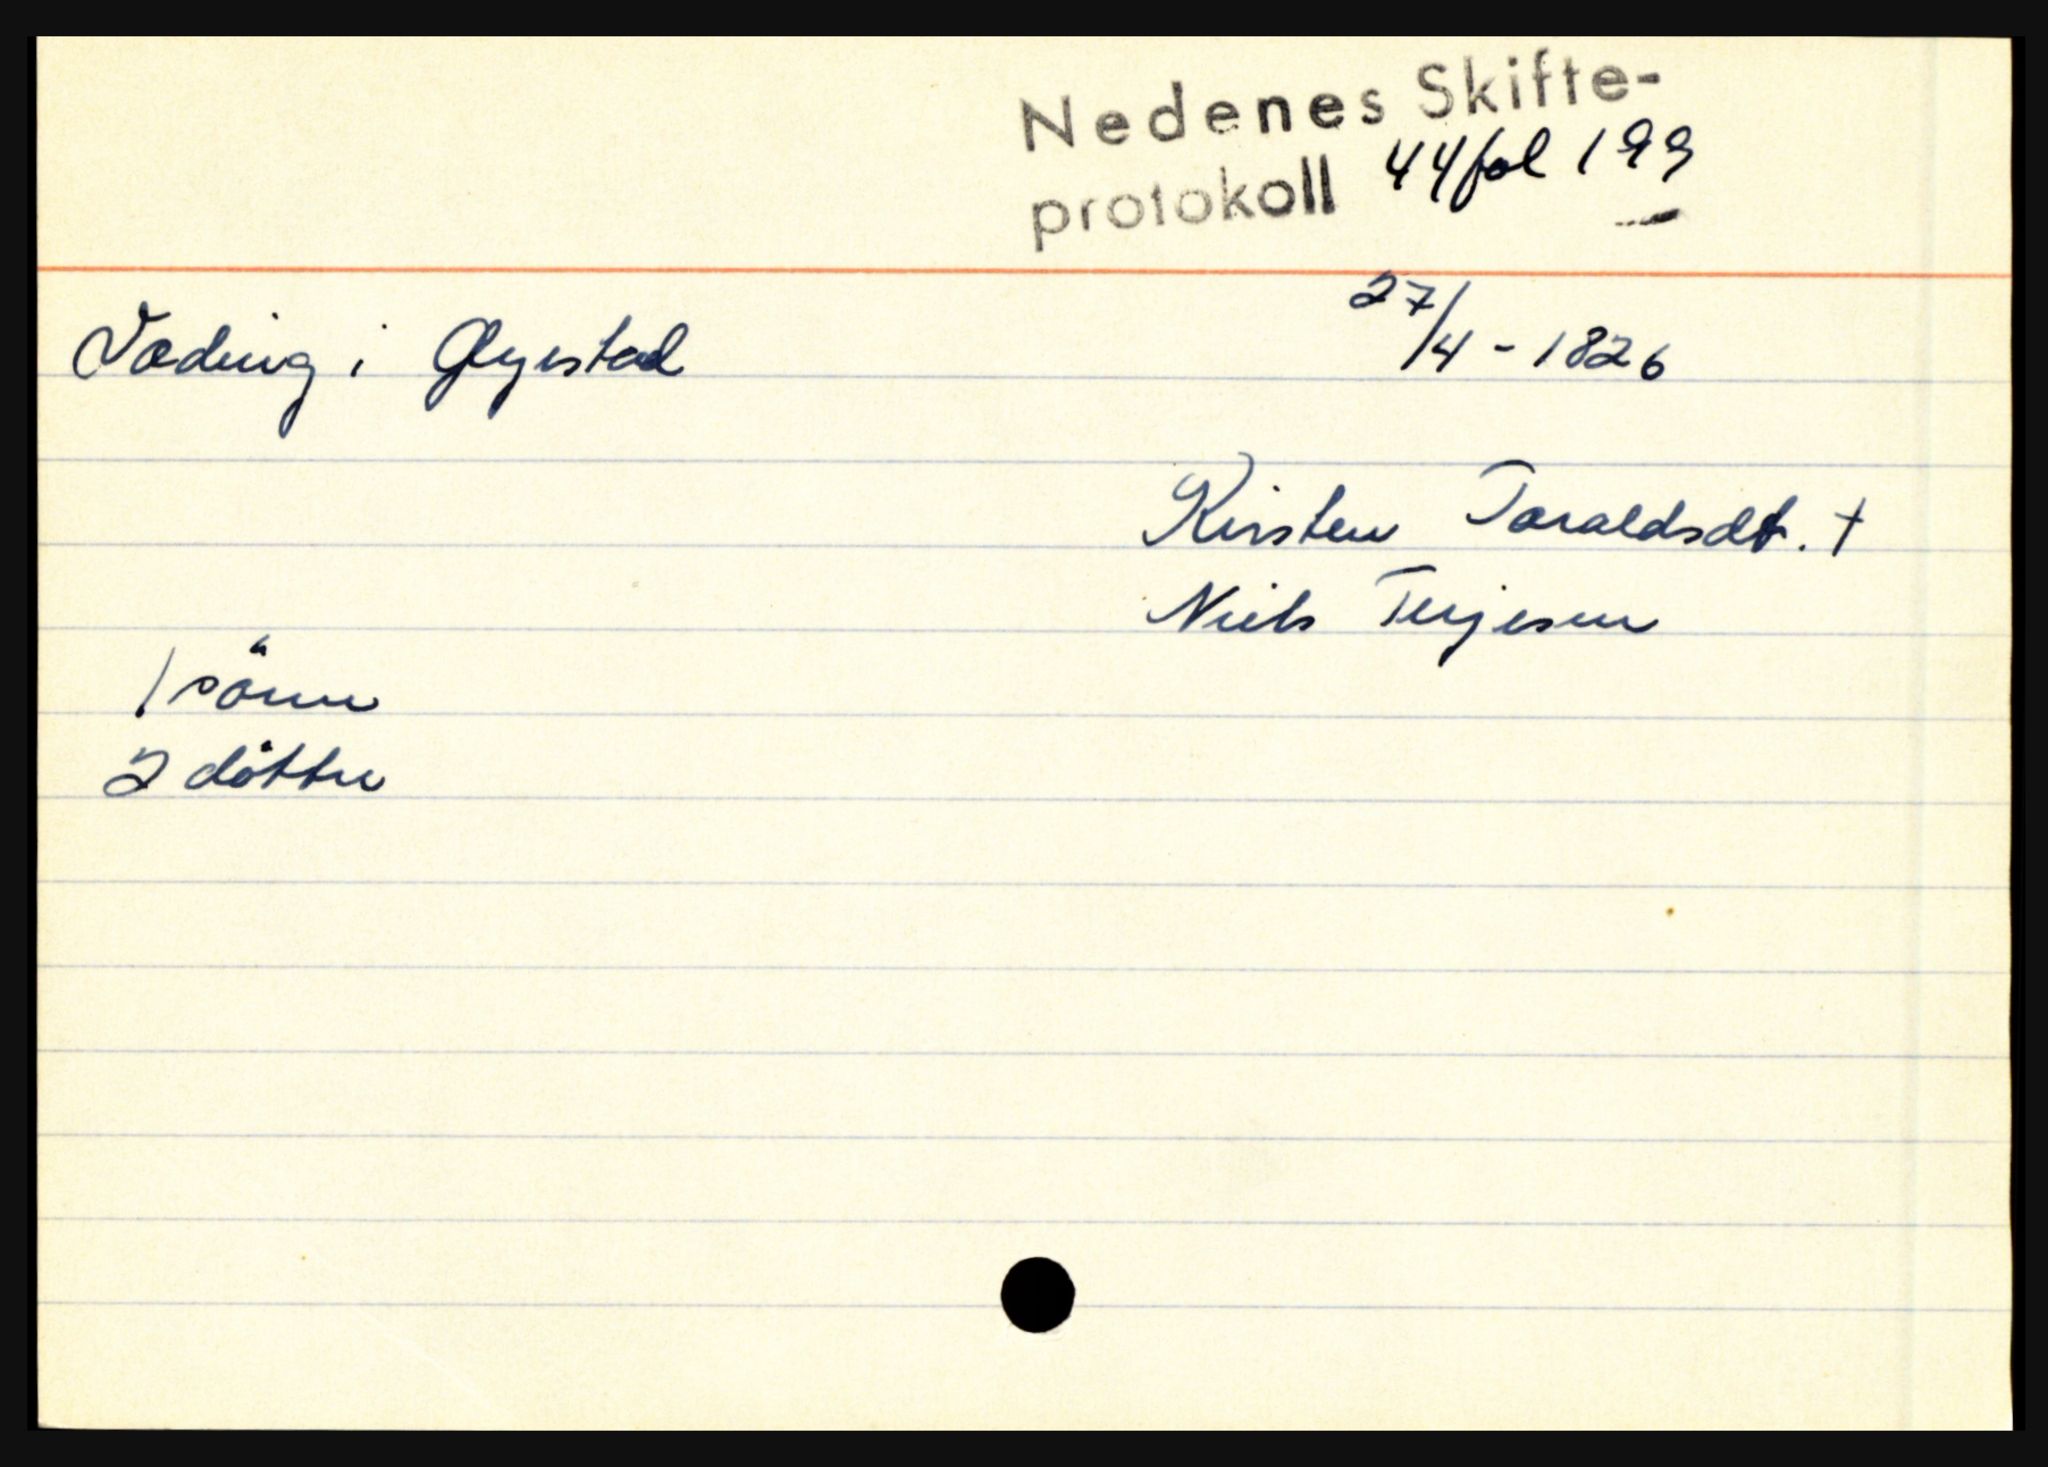 Nedenes Skifte-
protokoll 44 fol 199
Væding i Øyestad 27/4 - 1826
Kirsten Taraldsdt. +
Niels Terjesen
1 sönn
2 döttre